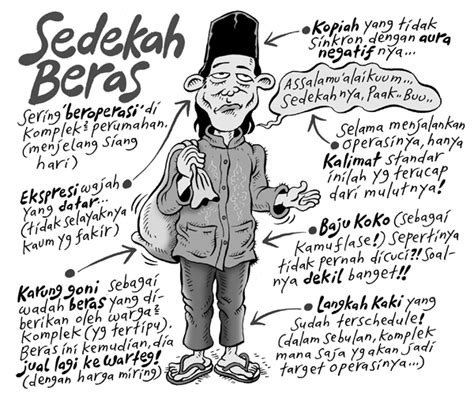 Sedekah
Beras
Sering 'beroperasi' di
komplek² perumahan.
(menjelang siang
hari)
Ekspresi wajah
yang datar...
(tidak selayaknya
kaum yg fakir)
Karung goni sebagai
wadah beras yang di-
berikan oleh warga²
komplek (yg tertipu).
Beras ini kemudian, dia
jual lagi ke warteg!
(dengan harga miring)
Kopiah yang tidak
sinkron dengan aura
negatifnya...
Assalamu'alaikuum...
Sedekahnya, Paak.. Buu..
Selama menjalankan
operasinya, hanya
Kalimat standar
inilah yg terucap
dari mulutnya!
Baju Koko (sebagai
kamuflase!) Sepertinya
tidak pernah dicuci!! Soal-
nya dekil banget!!
Langkah kaki yang
sudah terschedule!
(dalam sebulan, komplek
mana saja yg akan jadi
target operasinya...)